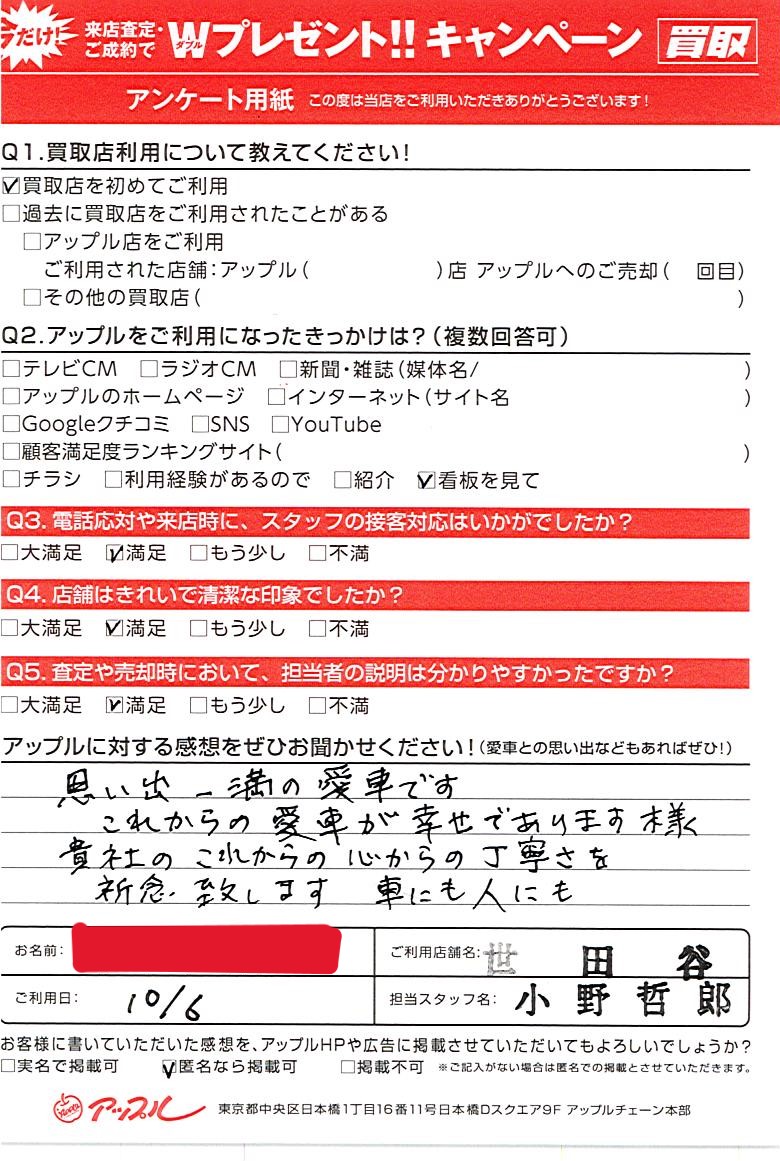 だけ! 来店査定・ご成約で Wダブルプレゼント!! キャンペーン 買取
アンケート用紙 この度は当店をご利用いただきありがとうございます!
Q1.買取店利用について教えてください!
☑買取店を初めてご利用
□過去に買取店をご利用されたことがある
□アップル店をご利用
ご利用された店舗:アップル( )店 アップルへのご売却( 回目)
□その他の買取店( )
Q2.アップルをご利用になったきっかけは?(複数回答可)
□テレビCM □ラジオCM □新聞・雑誌(媒体名/ )
□アップルのホームページ □インターネット(サイト名 )
□Googleクチコミ □SNS □YouTube
□顧客満足度ランキングサイト( )
□チラシ □利用経験があるので □紹介 ☑看板を見て
Q3. 電話応対や来店時に、スタッフの接客対応はいかがでしたか?
□大満足 ☑満足 □もう少し □不満
Q4. 店舗はきれいで清潔な印象でしたか?
□大満足 ☑満足 □もう少し □不満
Q5. 査定や売却時において、担当者の説明は分かりやすかったですか?
□大満足 ☑満足 □もう少し □不満
アップルに対する感想をぜひお聞かせください!(愛車との思い出などもあればぜひ!)
思い出一満の愛車です
これからの愛車が幸せであります様
貴社のこれからの心からの丁寧さを
祈念致します 車にも人にも
お名前: ご利用店舗名: 世田谷
ご利用日: 10/6 担当スタッフ名: 小野哲郎
お客様に書いていただいた感想を、アップルHPや広告に掲載させていただいてもよろしいでしょうか?
□実名で掲載可 ☑匿名なら掲載可 □掲載不可 ※ご記入がない場合は匿名での掲載とさせていただきます。
アップル 東京都中央区日本橋1丁目16番11号日本橋Dスクエア9F アップルチェーン本部